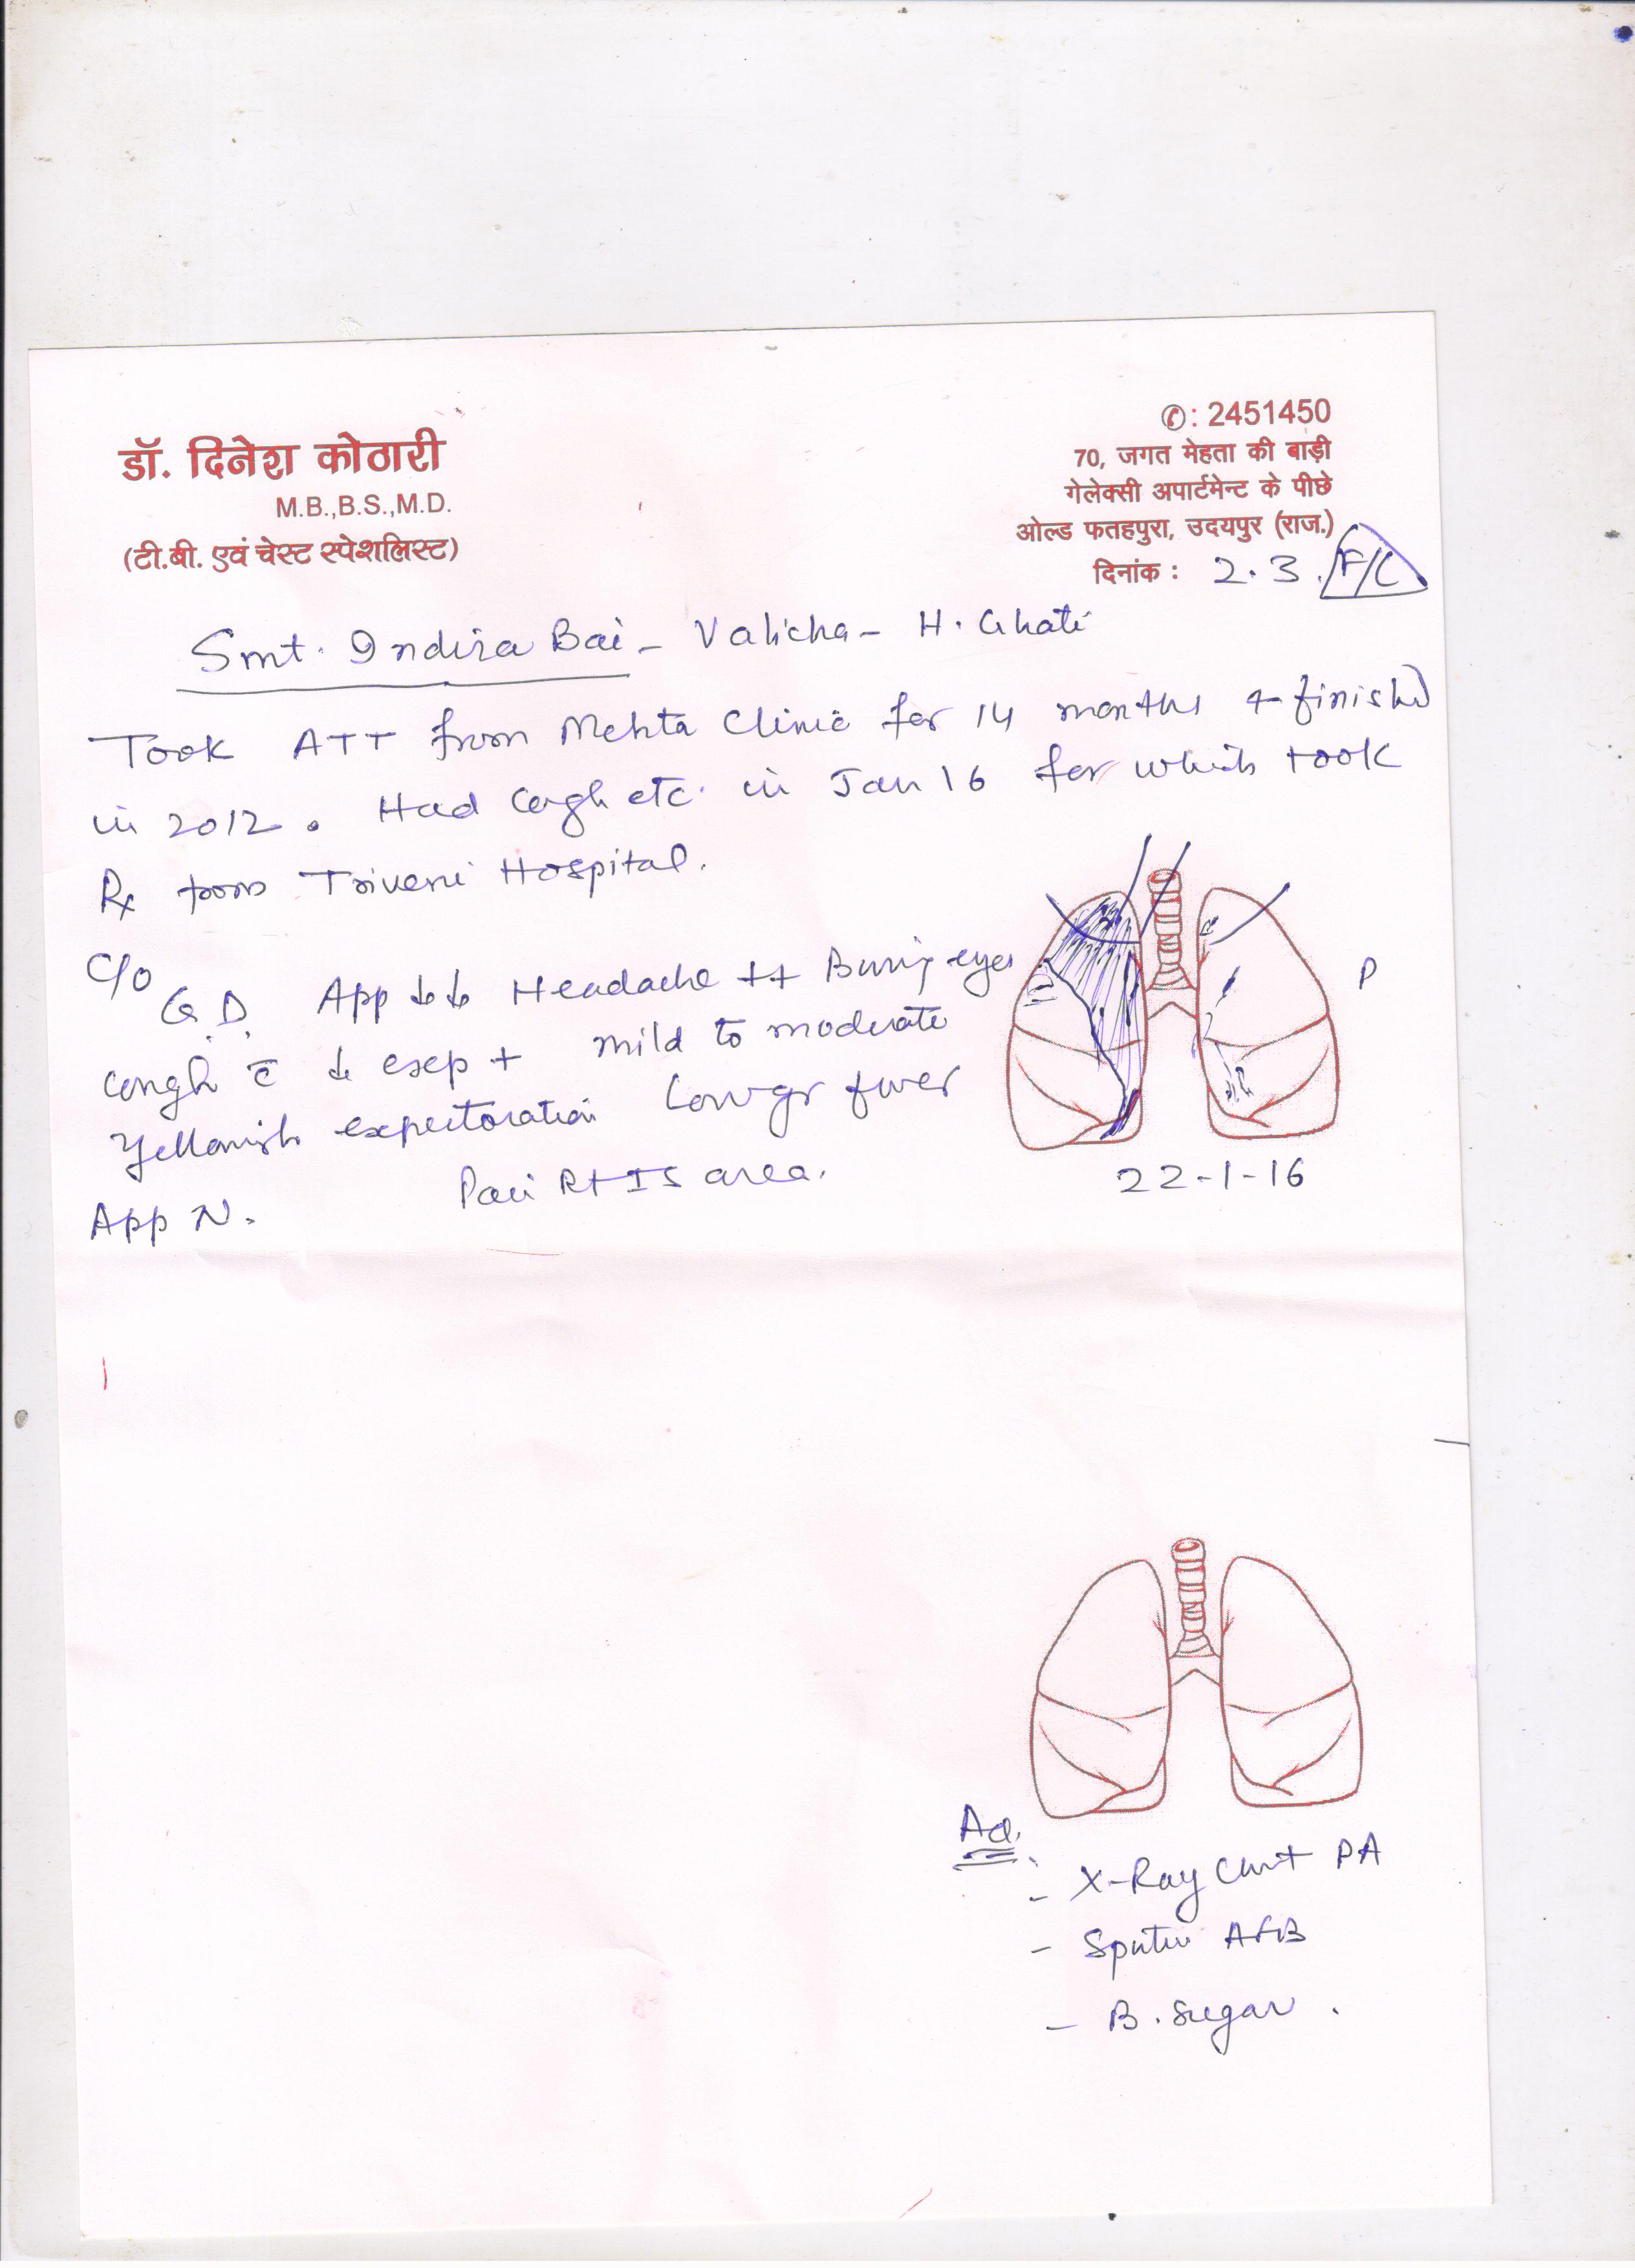 डॉ. दिनेश कोठारी
M.B.,B.S.,M.D.
(टी.बी. एवं चेस्ट स्पेशलिस्ट)
✆: 2451450
70, जगत मेहता की बाड़ी
गेलेक्सी अपार्टमेन्ट के पीछे
ओल्ड फतहपुरा, उदयपुर (राज.)
दिनांक : 2.3. F/C
Smt. Indira Bai - Valicha - H. Ghati
Took ATT from Mehta Clinic for 14 months & finished
in 2012. Had cough etc. in Jan 16 for which took
Rx from Triveni Hospital.
C/o G.D. App ↓↓ Headache ++ Burnig eyes
cough c̄ ↓ exep + mild to moderate
Yellowish expectoration Low gr fever
App N. Pain Rt IS area.
P
22-1-16
Ad.
- X-Ray Chest PA
- Sputum AFB
- B. Sugar.